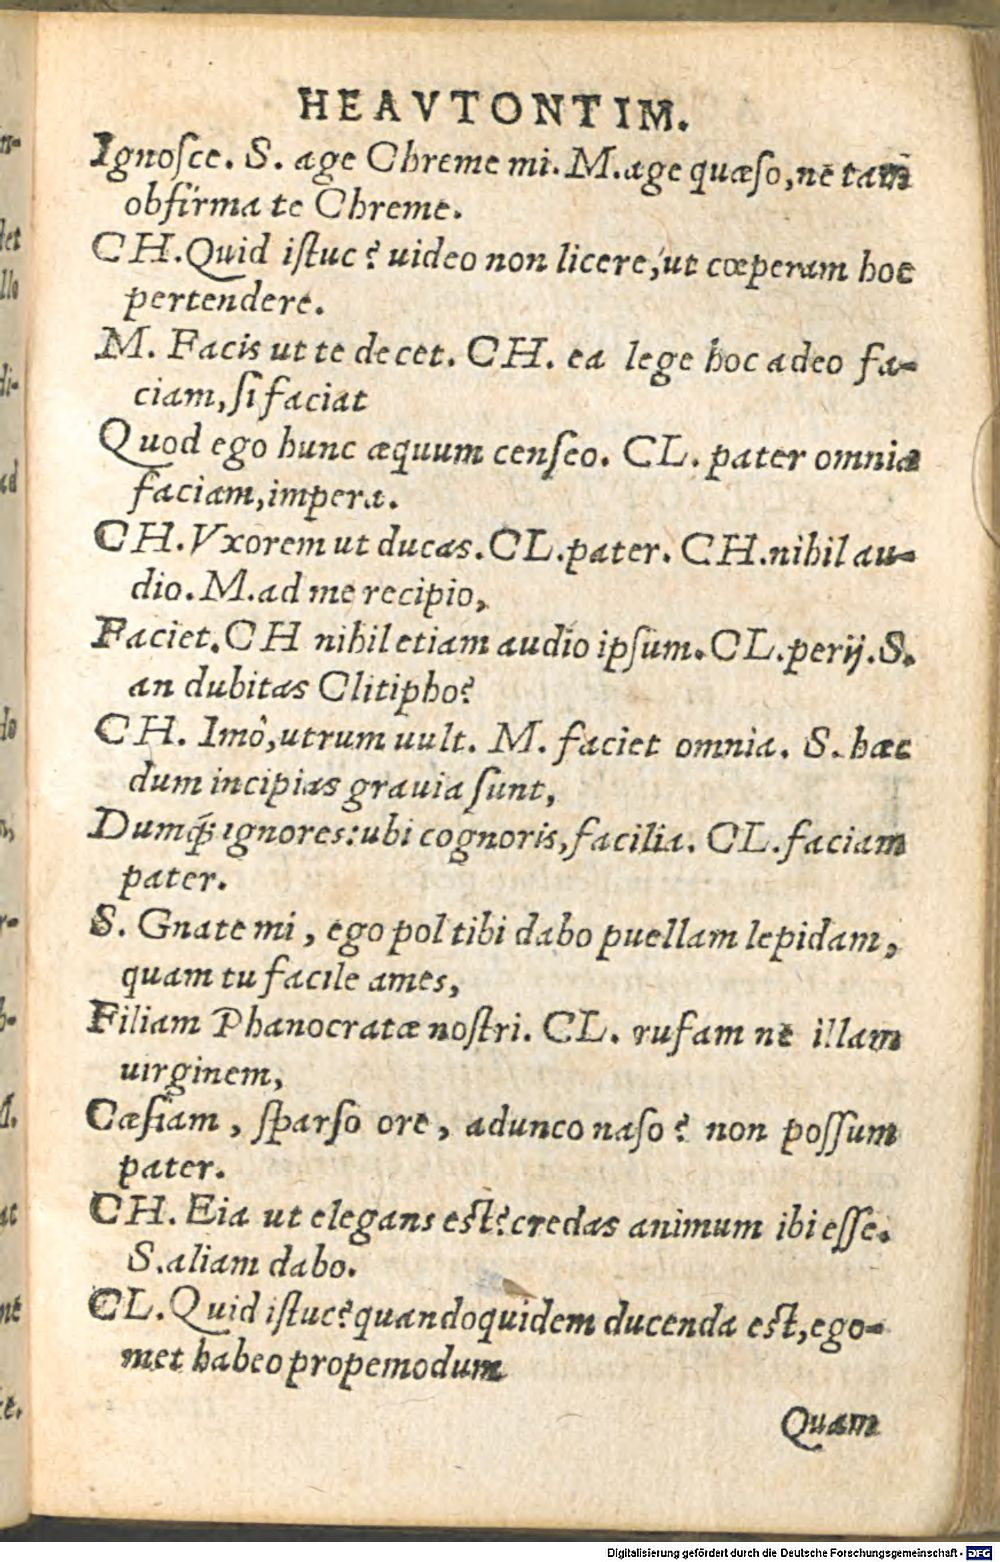 HEAVTONTIM.
Ignoſce. S. age Chreme mi. M. age quæſo, ne tam
obfirma te Chreme.
CH. Quid iſtuc? uideo non licere, ut cœperam hoc
pertendere.
M. Facis ut te decet. CH. ea lege hoc adeo fa-
ciam, ſi faciat
Quod ego hunc æquum cenſeo. CL. pater omnia
faciam, impera.
CH. Vxorem ut ducas. CL. pater. CH. nihil au-
dio. M. ad me recipio,
Faciet. CH nihil etiam audio ipſum. CL. perij. S.
an dubitas Clitipho?
CH. Imò, utrum uult. M. faciet omnia. S. hæc
dum incipias grauia ſunt,
Dumq́; ignores: ubi cognoris, facilia. CL. faciam
pater.
S. Gnate mi, ego pol tibi dabo puellam lepidam,
quam tu facile ames,
Filiam Phanocratæ noſtri. CL. rufam ne illam
uirginem,
Cæſiam, ſparſo ore, adunco naſo? non poſſum
pater.
CH. Eia ut elegans eſt? credas animum ibi eſſe.
S. aliam dabo.
CL. Quid iſtuc? quandoquidem ducenda eſt, ego-
met habeo propemodum
Quam
Digitalisierung gefördert durch die Deutsche Forschungsgemeinschaft - DFG